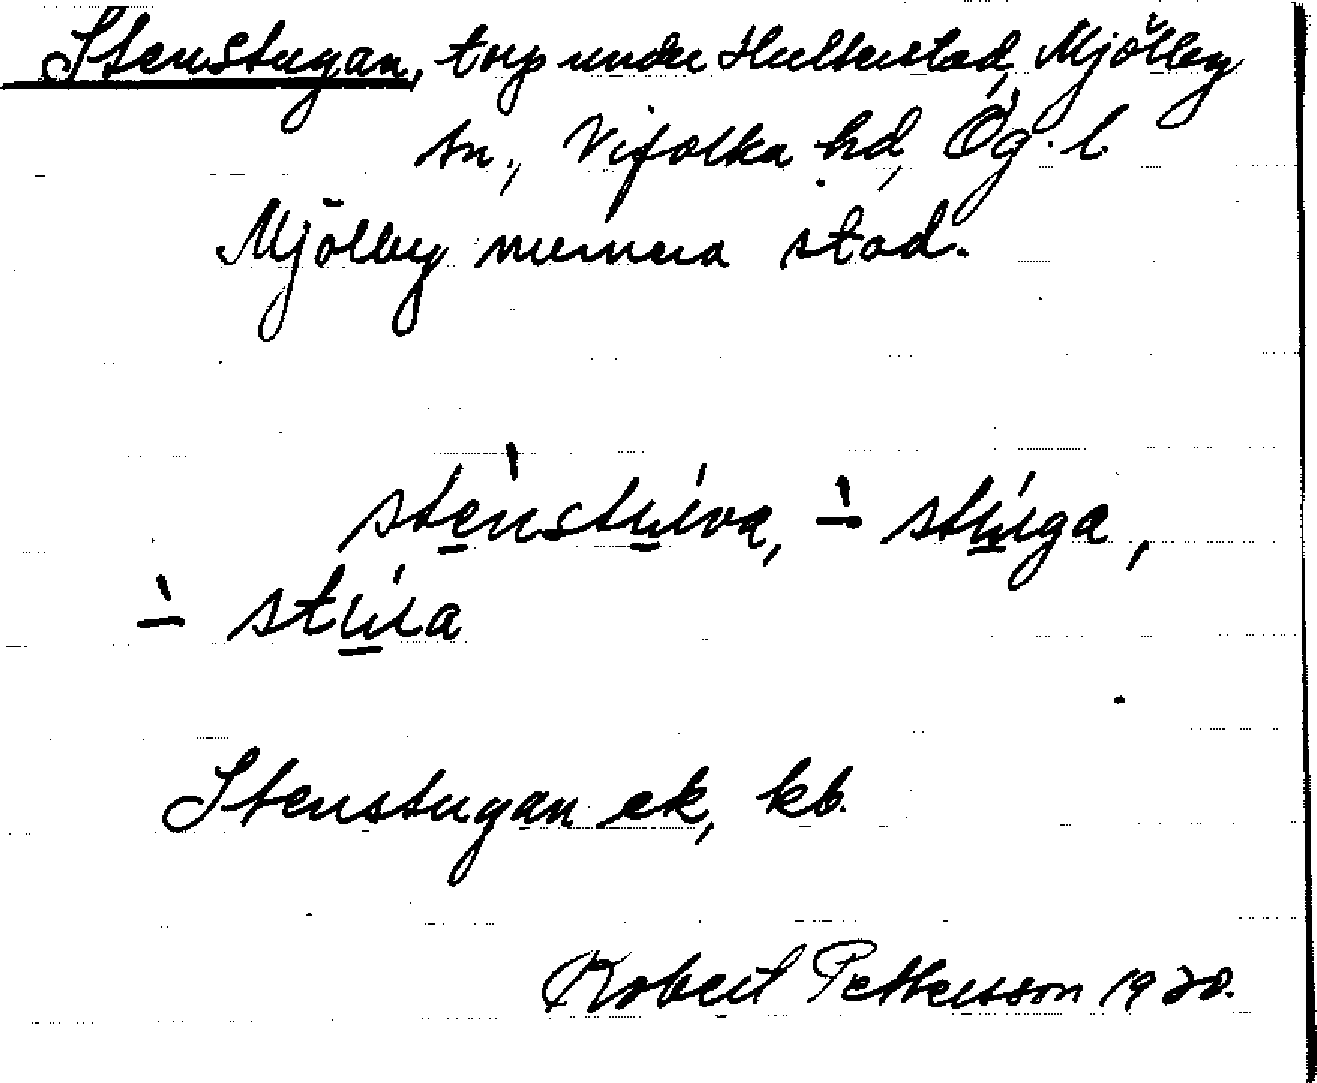 Stenstugan, torp under Hulterstad, Mjölby
sn., Vifolka hd, Ög. l.
Mjölby numera stad.
stènstúva, ∸ stúga,
∸ stúa
Stenstugan ek, kb.
Robert Pettersson 1920.